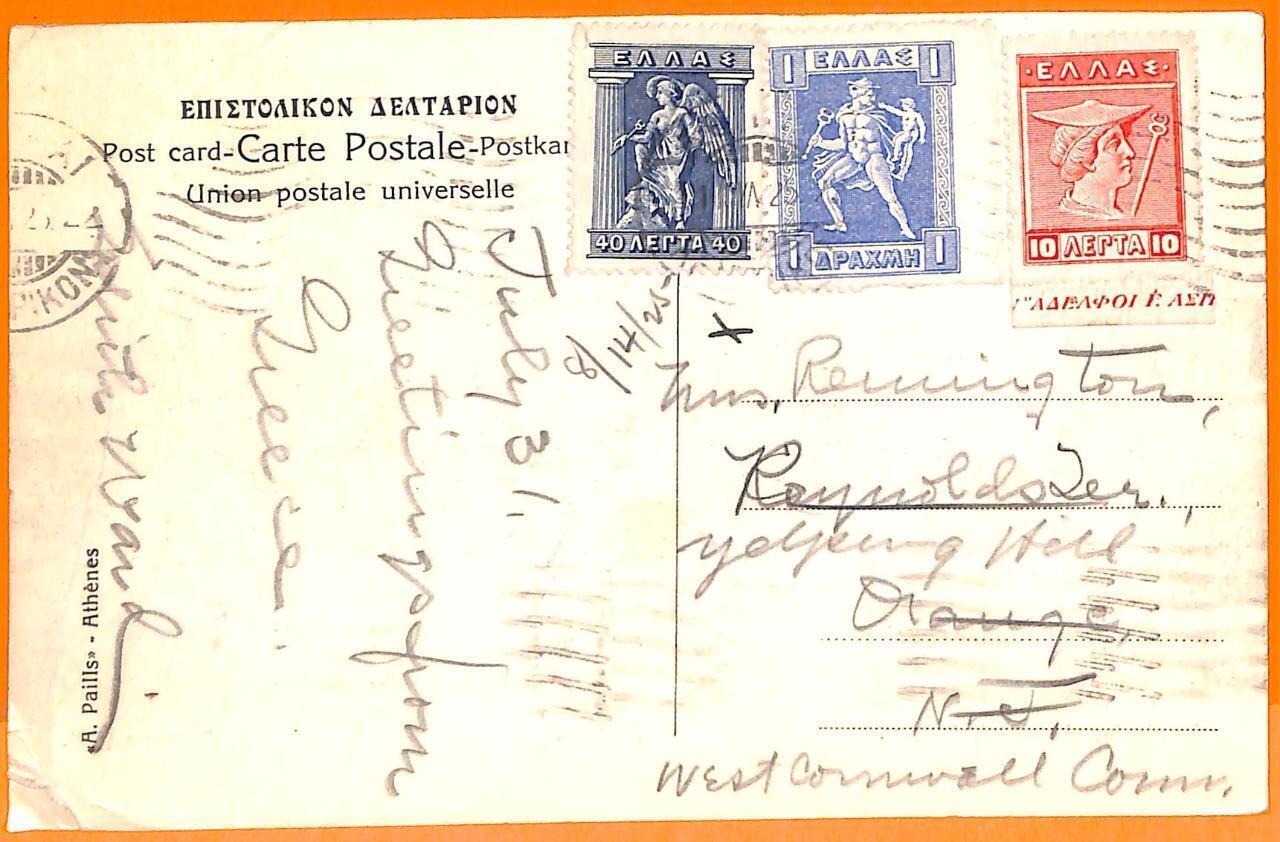 ΕΠΙΣΤΟΛΙΚΟΝ ΔΕΛΤΑΡΙΟΝ
Post card-Carte Postale-Postkar
Union postale universelle
ΕΛΛΑΣ
40 ΛΕΠΤΑ 40
1 ΕΛΛΑΣ 1
1 ΔΡΑΧΜΗ 1
·ΕΛΛΑΣ·
10 ΛΕΠΤΑ 10
ΑΔΕΛΦΟΙ Γ. ΑΣΠ
July 31.
Greetings from
Greece.
Ward
8/14/25
x
Mrs. Remington,
Reynolds Ter.,
Hill
Orange,
N.J.
West Cornwall Conn.
«A. Paills» - Athènes